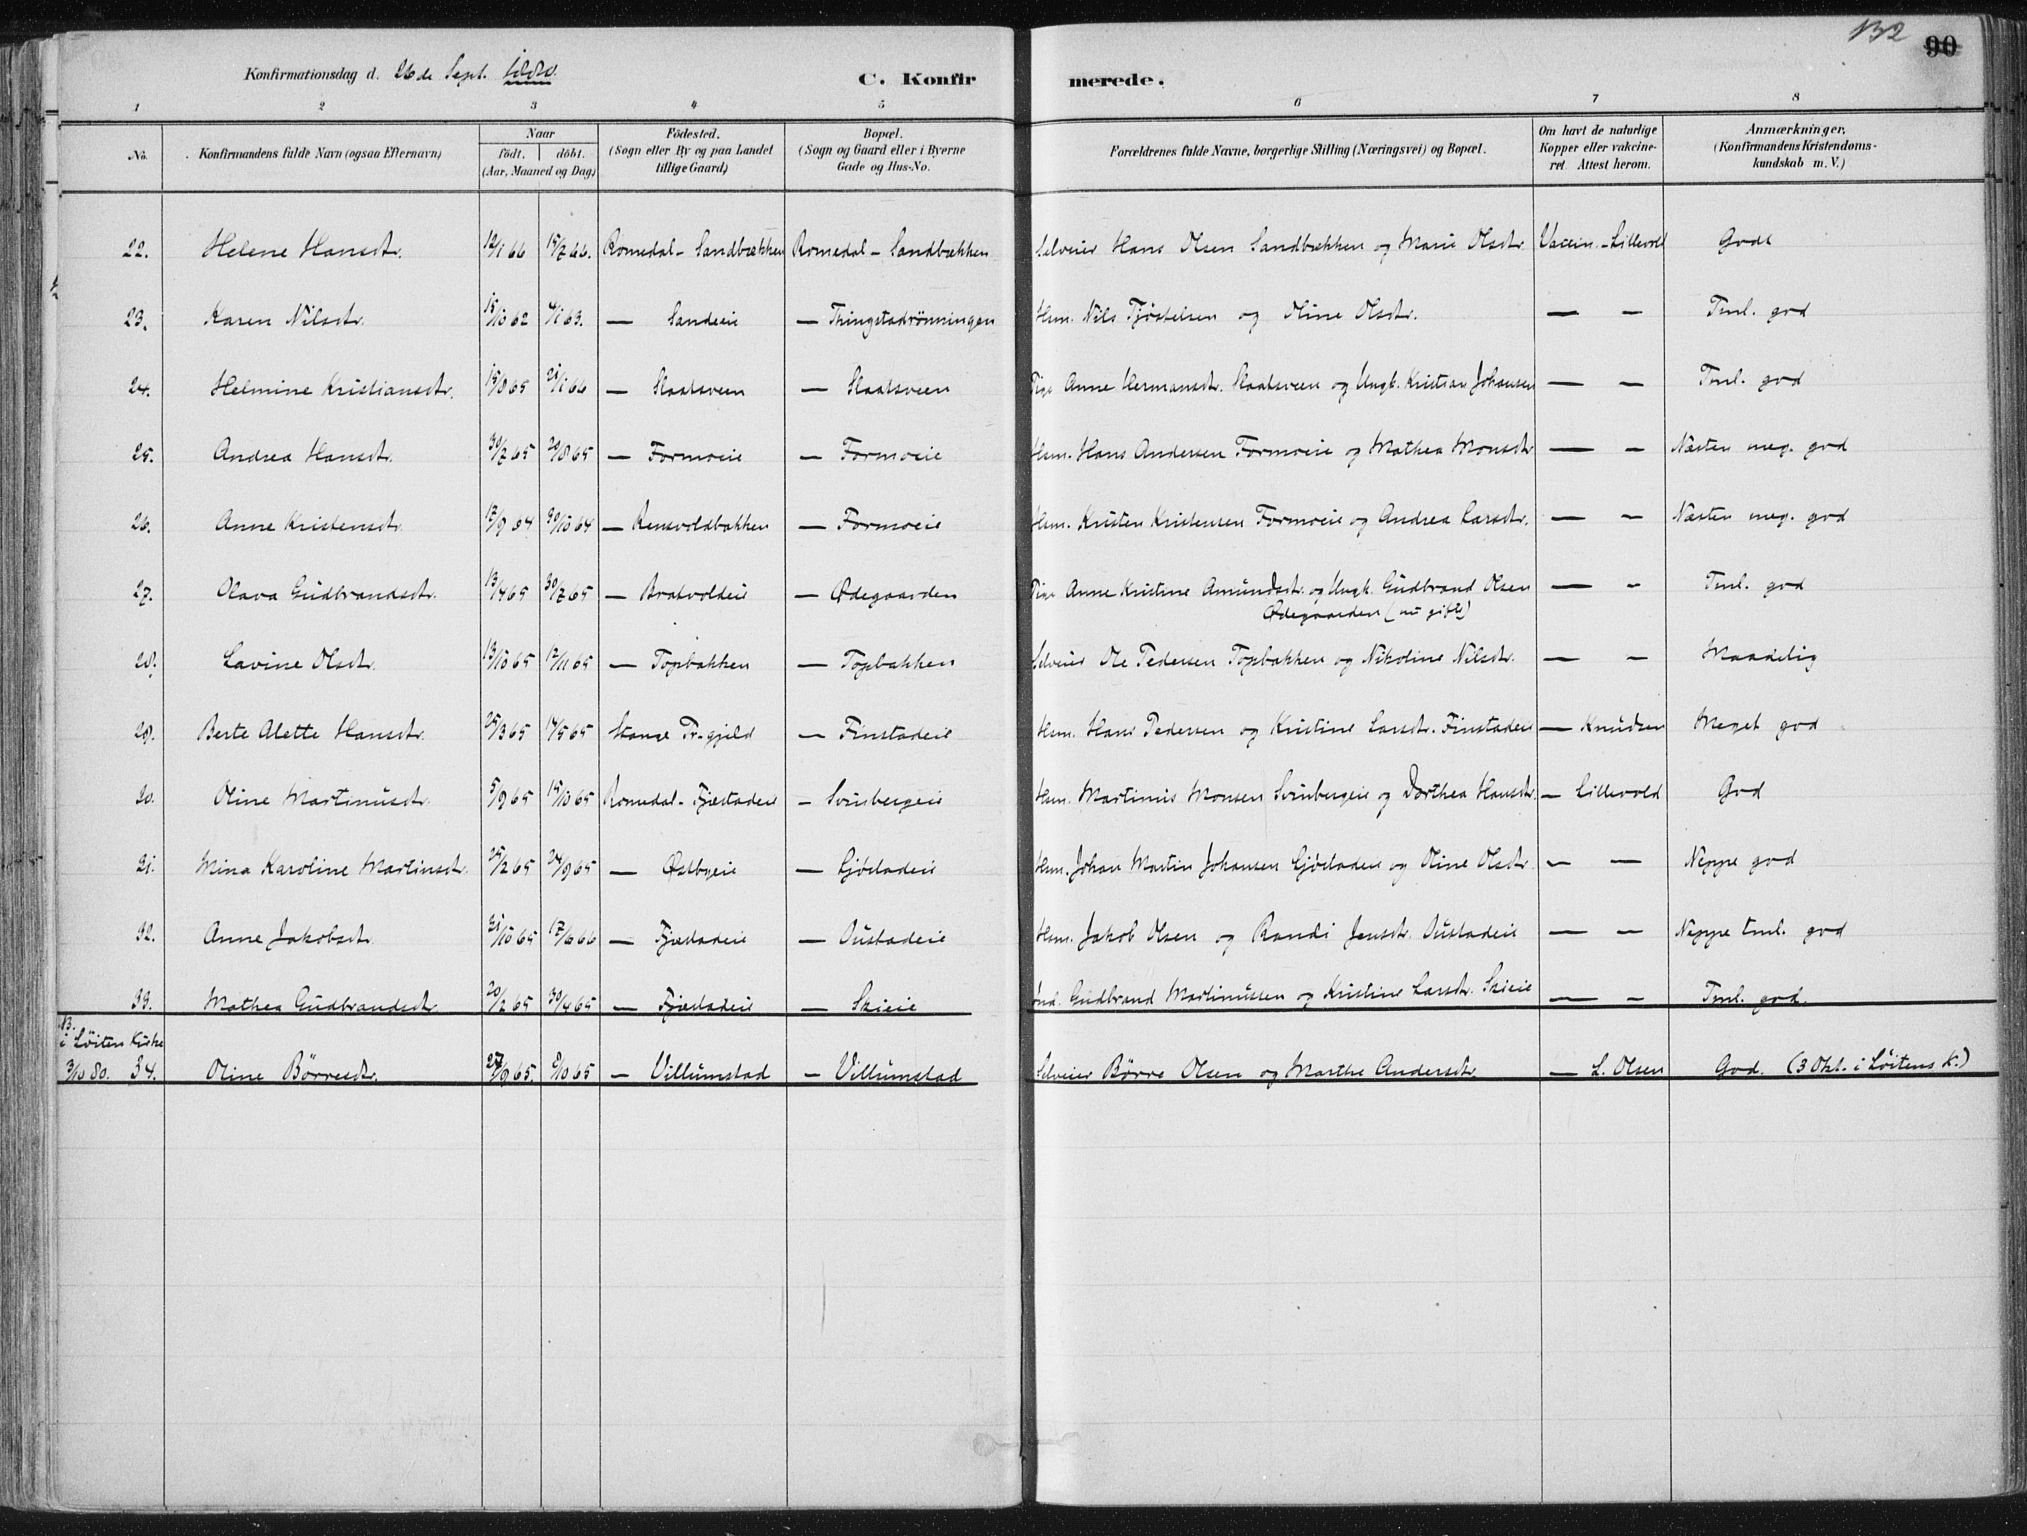 132
90
Konfirmationsdag d. 26de Sept. 1880.
C. Konfirmerede.
1 2 3 4 5 6 7 8
No.
Konfirmandens fulde Navn (ogsaa Efternavn)
Naar
födt. döbt.
(Aar, Maaned og Dag)
Födested.
(Sogn eller By og paa Landet
tillige Gaard)
Bopæl.
(Sogn og Gaard eller i Byerne
Gade og Hus-No.
Forældrenes fulde Navne, borgerlige Stilling (Næringsvei) og Bopæl.
Om havt de naturlige
Kopper eller vakcine-
ret. Attest herom.
Anmærkninger,
(Konfirmandens Kristendoms-
kundskab m. V.)
22. Helene Hansdtr. 12/1 66 15/7 66. Romedal - Sandbækken Romedal - Sandbækken Selveier Hans Olsen Sandbækken og Marie Olsdtr. Vaccin. - Lillevold Godt
23. Karen Nilsdtr. 15/10 62 4/1 63. — Sandeie — Thingstadrönningen Hsm. Nils Tjöstelsen og Oline Olsdtr. — — Tml. god
24. Helmine Kristiansdtr. 15/8 65 21/1 66 — Staatsveen — Staatsveen Pige Anne Hermansdtr. Staatsveen og Ungk. Kristian Johansen — — Tml. god
25. Andrea Hansdtr. 30/7 65 20/8 65 — Formoeie — Formoeie Hsm. Hans Andersen Formoeie og Mathea Monsdtr — — Næsten meg. god
26. Anne Kristensdtr. 17/9 64 30/10 64 — Rensvoldbakken — Formoeie Hsm. Kristen Kristensen Formoeie og Andrea Larsdtr. — — Næsten meg. god
27. Olava Gudbrandsdtr. 13/4 65 30/7 65 — Bratvoldeie — Ødegaarden Pige Anne Kristine Amundsdtr. og Ungk. Gudbrand Olsen — — Tml. god
Ødegaarden (nu gifte)
28. Lavine Olsdtr. 13/10 65 12/11 65 — Topbakken — Topbakken Selveier Ole Pedersen Topbakken og Nikoline Nilsdtr. — — Maadelig
29. Berte Alette Hansdtr. 25/3 65 14/5 65 Stange Pr-gjeld — Finstadeie Hsm. Hans Pedersen og Kristine Larsdtr. Finstadeie — Knudsen Meget god
30. Oline Martinusdtr. 5/9 65 15/10 65 Romedal - Fjæstadeie — Svinbergeie Hsm. Martinus Monsen Svinbergeie og Dorthea Hansdtr. — Lillevold God
31. Mina Karoline Martinsdtr. 25/2 65 24/9 65 — Østbyeie — Gjöstadeie Hsm. Johan Martin Johansen Gjöstadeie og Oline Olsdtr. — — Neppe god
32. Anne Jakobsdtr. 31/10 65 17/6 66 — Fjæstadeie — Oustadeie Hsm. Jakob Olsen og Randi Jensdtr. Oustadeie — — Neppe tml. god
33. Mathea Gudbrandsdtr 20/2 65 30/4 65 — Fjæstadeie — Skieie Ind. Gudbrand Martinussen og Kristine Larsdtr. Skieie — — Tml. god.
13.
i Löiten Kirke
3/10 80. 34. Oline Börresdtr. 27/9 65. 8/10 65 — Villumstad — Villumstad Selveier Börre Olsen og Marthe Andersdtr. — L. Olsen God. (3 Okt. i Löitens K.)